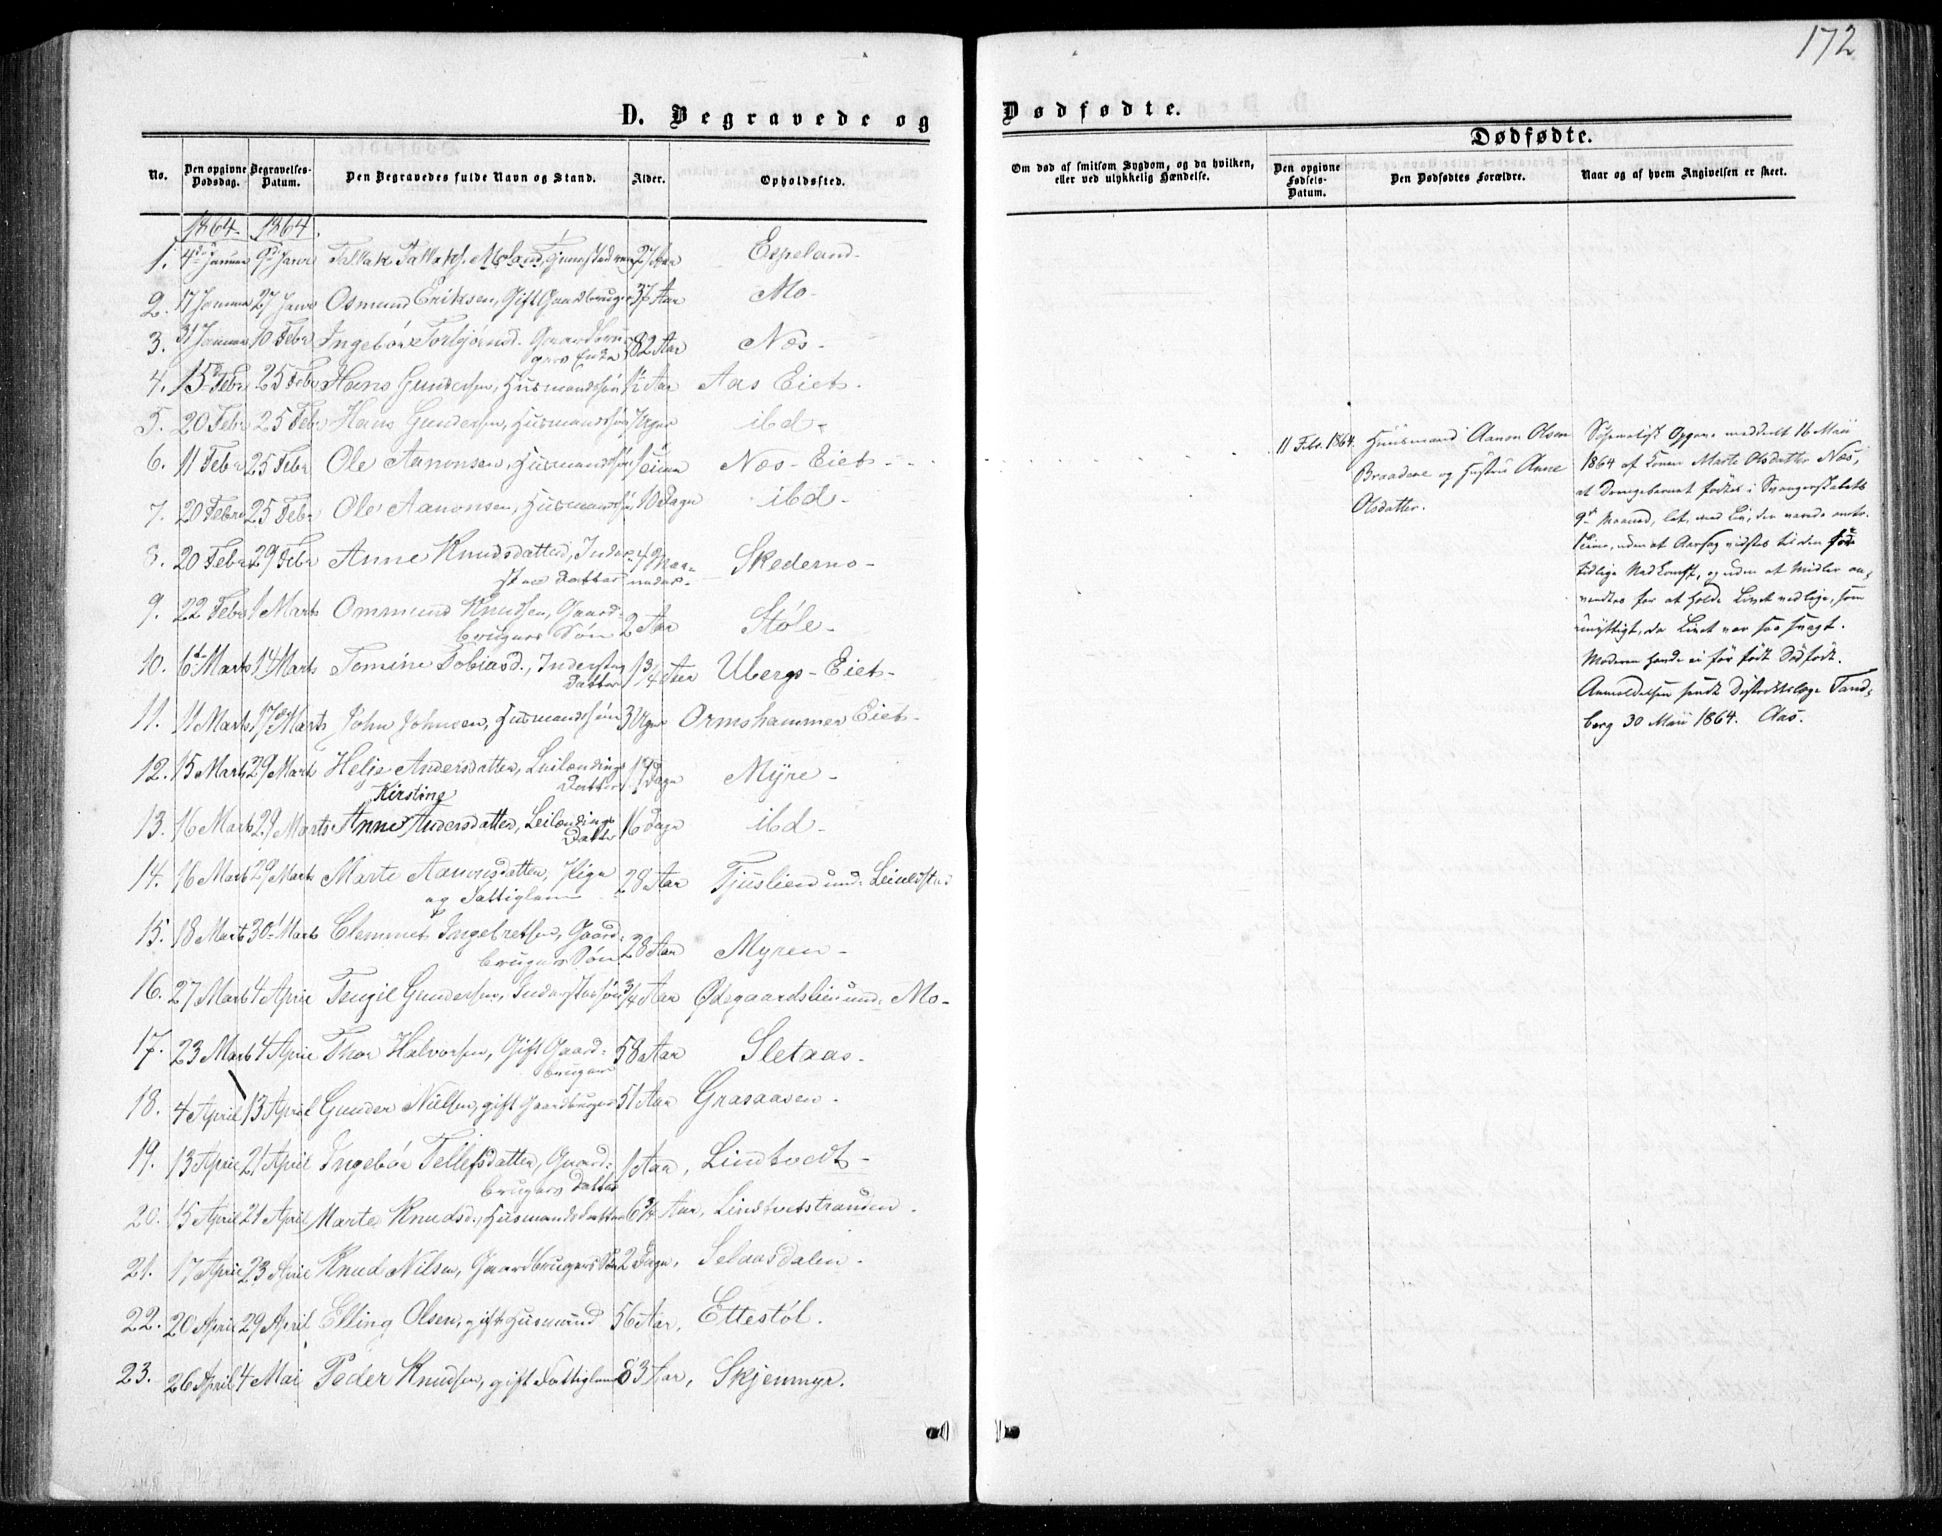 172
D. Begravede og
Dødfødte.
Dødfødte.
No.
Den opgivne Dødsdag.
Begravelses-Datum.
Den Begravedes fulde Navn og Stand.
Alder.
Opholdssted.
Om død af smitsom Sygdom, og da hvilken, eller ved ulykkelig Hændelse.
Den opgivne Fødsels-Datum.
Den Dødfødtes Forældre.
Naar og af hvem Angivelsen er skeet.
1864. 1864.
1. 4de Januar 9de Janr Tallak Tallaks. Moland, 27 Aar Espeland-
2. 17 Januar 27 Janr Osmund Eriksen, Gift Gaardbruger 37 Aar Mo-
3. 31 Januar 10 Febr Ingebor Torbjørnsd. Gaardbru-
gers Enke 82 Aar Næs-
4. 15de Febr 25 Febr Hans Gundersen, Husmandssøn 1/2 Aar Aas Eiet-
5. 20 Febr 25 Febr Hans Gundersen, Husmandssøn ibd-
6. 11 Febr 25 Febr Ole Aanonsen, Husmandssøn 1 Time Næs-Eiet-
7. 20 Febr 25 Febr Ole Aanonsen, Husmandssøn 10 Dage ibd-
8. 20 Febr 29 Febr Anne Knudsdatter, Inder-
stes Datter 4 Maa-
neder- Skederno-
9. 22 Febr 1 Marts Ommund Knudsen, Gaard-
brugers Søn 2 Aar Støle-
10. 6te Marts 14 Marts Tomine Tobiasd., Inderstes
Datter 1 3/4 Aar Ubergs-Eiet-
11. 11 Marts 17de Marts John Johnsen, Husmandssøn 3 Uger Ormshammer Eiet-
12. 15 Marts 29 Marts Helje Andersdatter, Leilændings
Datter 17 Dage Myre-
Kirstine
13. 16 Marts 29 Marts Anne Andersdatter, Leilændings
Datter 16 Dage ibd-
14. 16 Marts 29 Marts Marte Aanonsdatter, Pige
og Fattiglem 28 Aar Tjuslien und: Leinedstad
15. 18 Marts 30 Marts Clemmet Ingebretsen, Gaard-
brugers Søn 28 Aar Myren-
16. 27 Marts 4 April Tengil Gundersen, Inderstes søn 3/4 Aar Ødegaardslien und: Mo-
17. 23 Marts 4 April Thor Halvorsen, Gift Gaard-
bruger 58 Aar Sletaas-
18. 4 April 13 April Gunder Nielsen, gift Gaardbruger 51 Aar Grasaasen-
19. 13 April 21 April Ingebor Tellefsdatter, Gaard-
brugers Datter 1 Aar, Lindtvedt-
20. 15 April 21 April Marte Knudsd., Husmandsdatter 6 3/4 Aar, Lindtvetstranden.
21. 17 April 23 April Knud Nilsen, Gaardbrugers Søn 2 Dage, Selaasdalen-
22. 20 April 29 April Elling Olsen, gift Husmand 56 Aar, Ettestøl.
23. 26 April 4 Mai Peder Knudsen, gift Fattiglem 83 Aar, Skjenmyr.
11 Febr. 1864. Huusmand Aanon Olsen
Braadene og Hustru Anne
Olsdatter.
Opgave meddelt 16 Maii
1864 af Konen Marte Olsdatter Næs,
at Drengebarnet fødtes i Svangerskabets
9de Maaned, let, med Liv, der varede omtr.
1 Time, uden at Aarsag vidstes til den for
tidlige Nedkomst, og uden at Midler an-
vendtes for at holde Livet vedlige, som
unyttigt, da Livet var saa svagt.
Moderen havde ei før født Dødfødt.
Anmeldelsen sendt Districtslæge Tand-
berg 30 Maii 1864. Aas.